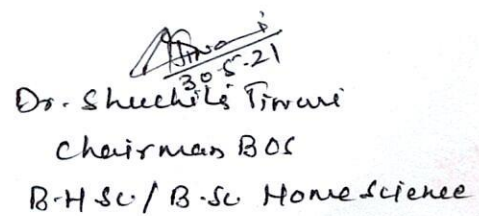 30.5.21
Dr. Shuchita Tiwari
Chairman BOS
B.H Sc / B.Sc Home Science